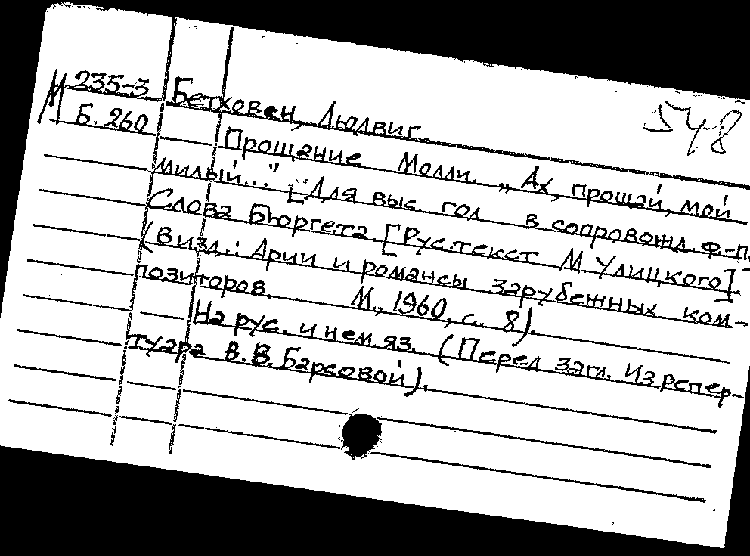 М 235-3 Бетховен, Людвиг. 548
Б. 260 Прощание Молли. „Ах, прощай, мой
милый..." [Для выс. гол. в сопровожд. ф-п.
Слова Бюргета. [Рус. текст М. Улицкого].
(В изд.: Арии и романсы зарубежных ком-
позиторов. М., 1960, с. 8).
На рус. и нем. яз. (Перед загл. Из репер-
туара В. В. Барсовой).